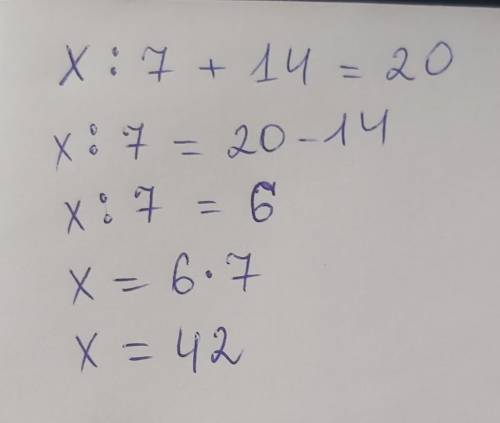 x : 7 + 14 = 20
x : 7 = 20 - 14
x : 7 = 6
x = 6 · 7
x = 42